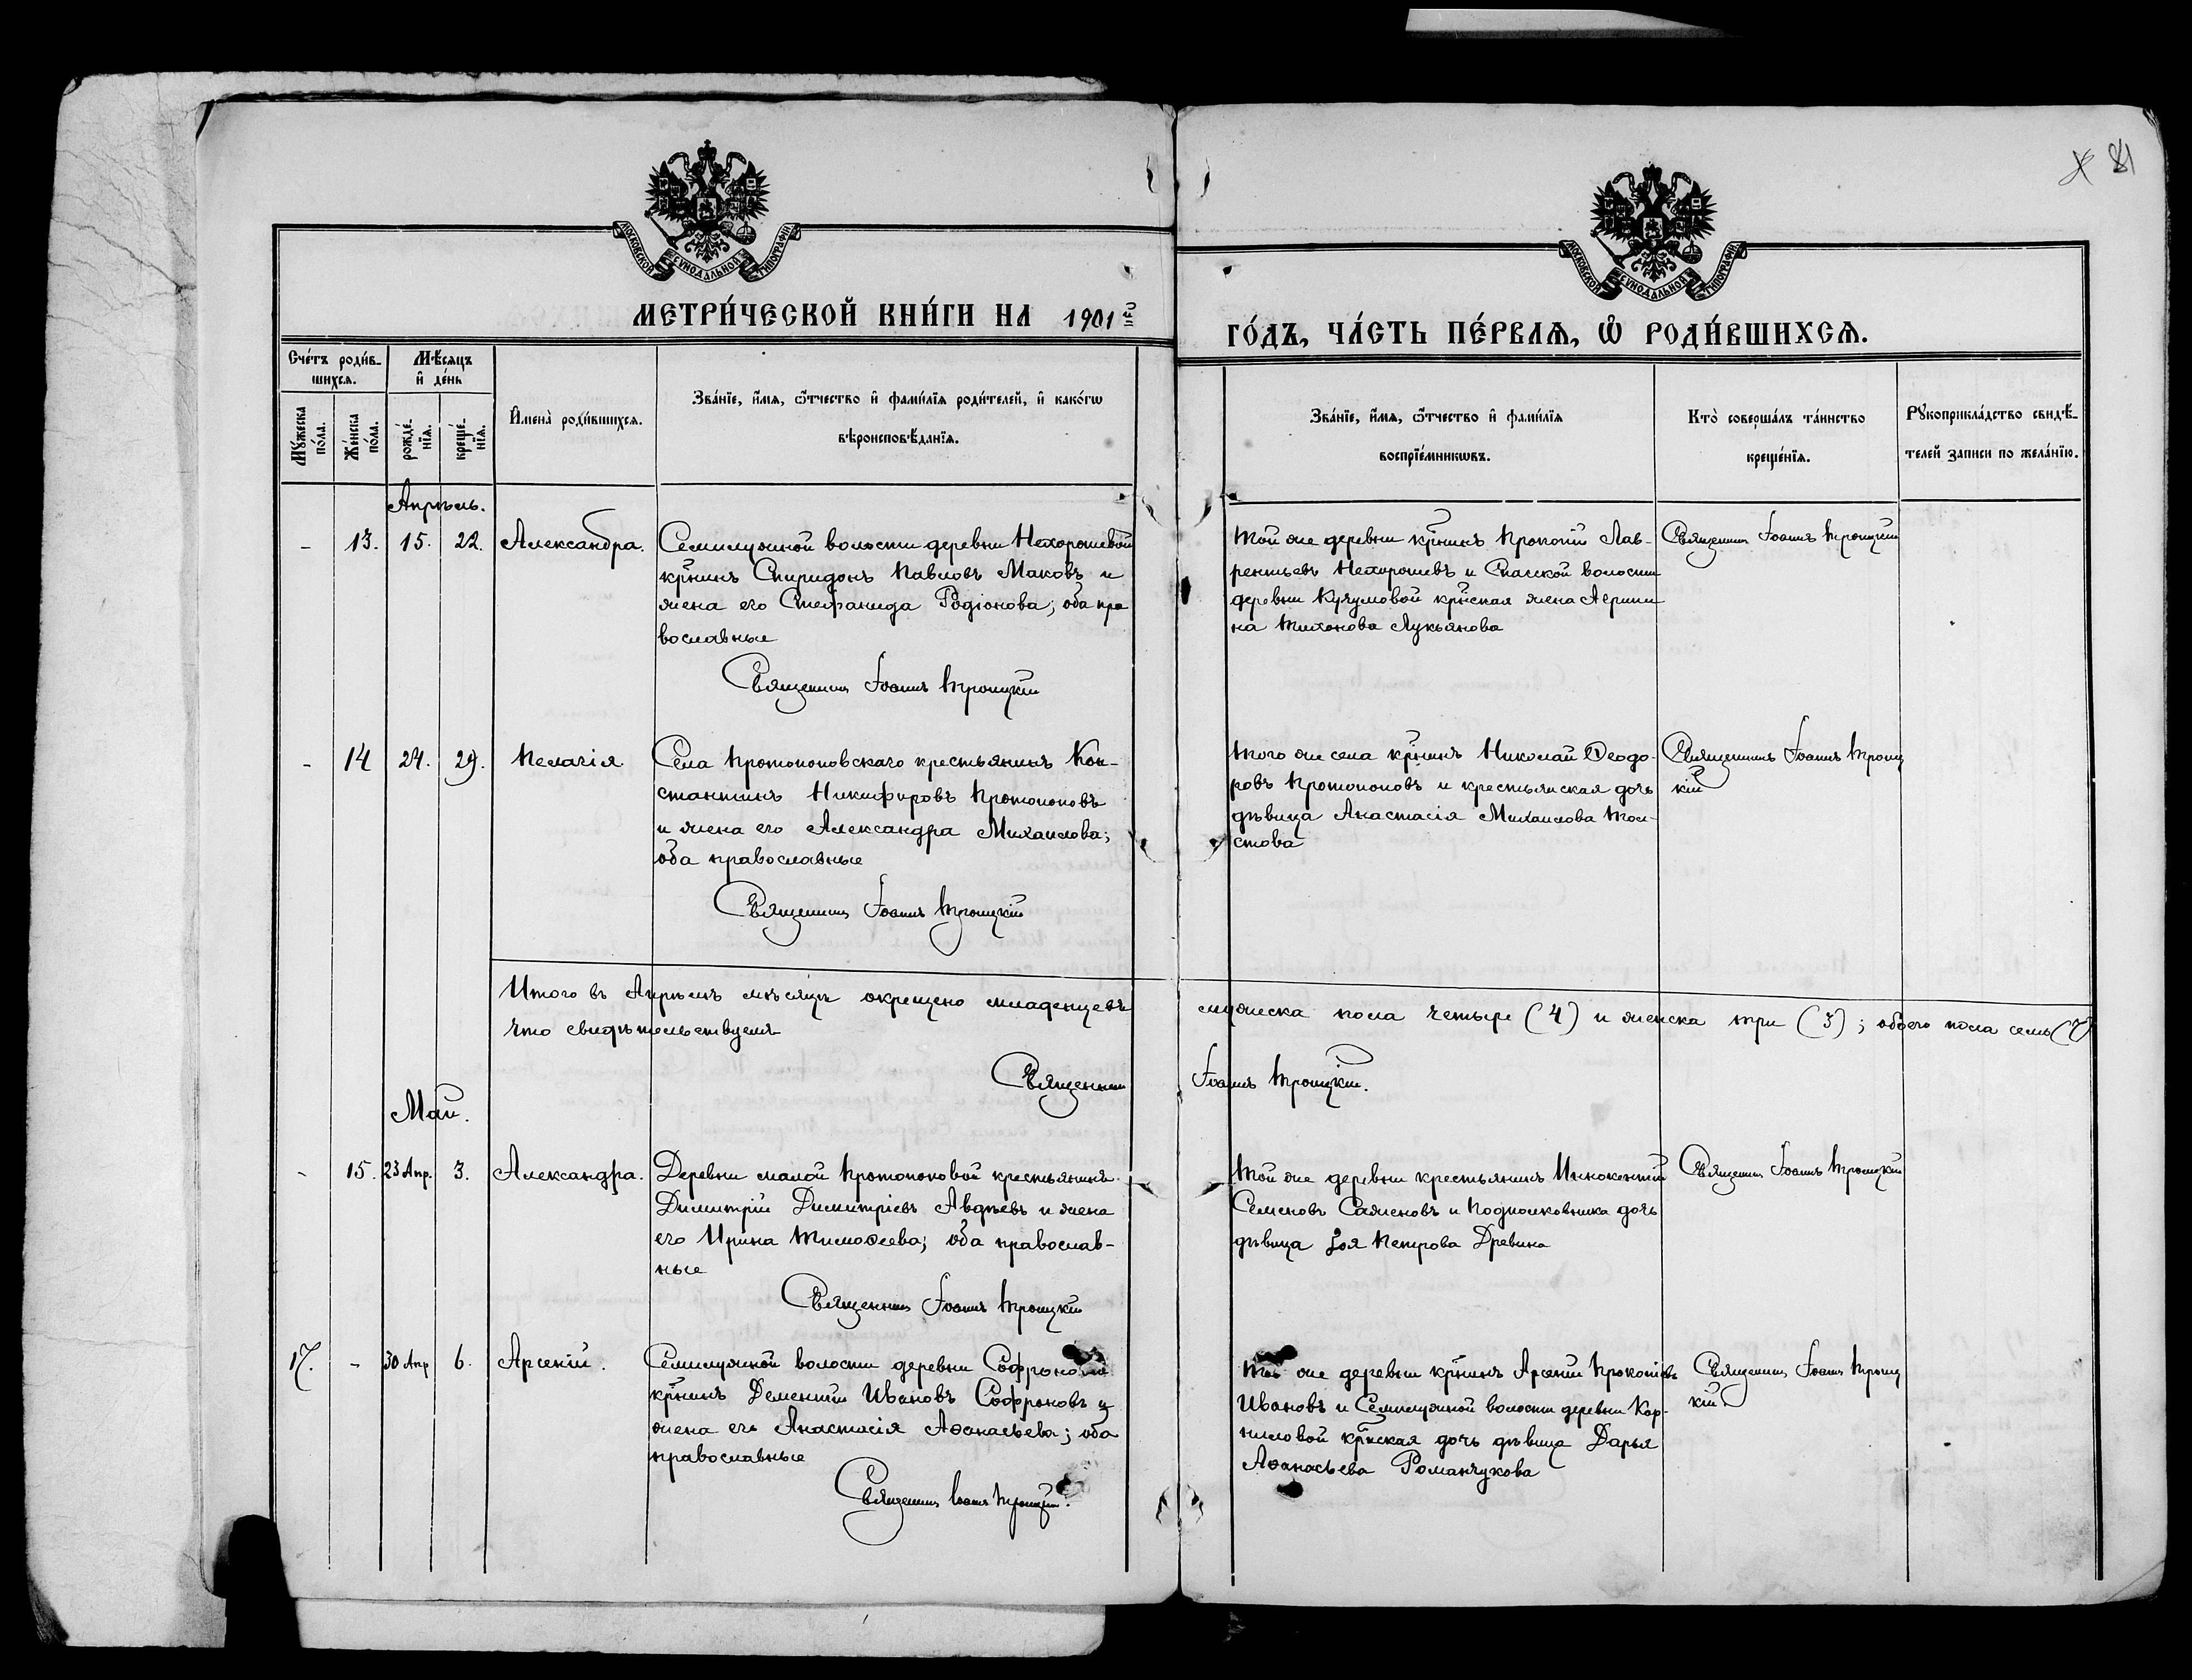 81
МОСКОВСКОЙ СУНОДАЛЬНОЙ ТИПОГРАФІИ
МОСКОВСКОЙ СУНОДАЛЬНОЙ ТИПОГРАФІИ
МЕТРИ́ЧЕСКОЙ КНИ́ГИ НА 1901
ГО́ДЪ, ЧА́СТЬ ПЕ́РВАѦ, Ѽ РОДИ́ВШИХСѦ.
Сче́тъ роди́в-
шихсѧ.
Мѣ́сѧцъ
и де́нь
Мꙋ́жеска
по́ла.
Же́нска
по́ла.
рожде́-
нїѧ.
креще́-
нїѧ.
Имена̀ роди́вшихсѧ.
Зва́нїе, и́мѧ, ѻ́тчество и фами́лїѧ роди́телей, и како́гѡ
вѣроисповѣ́данїѧ.
Зва́нїе, и́мѧ, ѻ́тчество и фами́лїѧ
воспрїе́мникѡвъ.
Кто̀ соверша́лъ та́инство
креще́нїѧ.
Рꙋкоприкла́дство свидѣ́-
телей записи по жела́нїю.
Апрѣль.
- 13. 15. 22. Александра.
Семилужной волости деревни Нехорошевой
кр̃нинъ Спиридонъ Павловъ Маковъ и
жена его Стефанида Родіонова; оба пра
вославные
Священникъ Іоаннъ Троицкій
Той же деревни кр̃нинъ Прокопій Лав-
рентьевъ Нехорошевъ и Спасской волости
деревни Кучумовой кр̃нская жена Агрипи
на Тихонова Лукьянова
Священникъ Іоаннъ Троицкій
- 14 24. 29. Пелагія.
Села Протопоповскаго крестьянинъ Кон-
стантинъ Никифоровъ Протопоповъ
и жена его Александра Михаилова;
оба православные
Священникъ Іоаннъ Троицкій
Того же села кр̃нинъ Николай Ѳеодо-
ровъ Протопоповъ и крестьянская дочь
дѣвица Анастасія Михаилова Тол-
стова
Священникъ Іоаннъ Троиц
кій
Итого въ Апрѣлѣ мѣсяцѣ окрещено младенцевъ мужеска пола четыре (4) и женска три (3); обоего пола семь (7)
Что свидѣтельствуемъ
Священникъ Іоаннъ Троицкій.
Май.
- 15. 23 Апр. 3. Александра.
Деревни малой Протопоповой крестьянинъ
Димитрій Димитріевъ Авдѣевъ и жена
его Ирина Тимоѳеева; оба православ-
ные
Священникъ Іоаннъ Троицкій
Той же деревни крестьянинъ Иннокентій
Семеновъ Саженовъ и Подполковника дочь
дѣвица Зоя Петрова Древина
Священникъ Іоаннъ Троицкій
17. - 30 Апр 6. Арсеній.
Семилужной волости деревни Софроновой
кр̃нинъ Дементій Ивановъ Софроновъ и
жена его Анастасія Аѳанасьева; оба
православные
Священникъ Іоаннъ Троицкій.
Той же деревни кр̃нинъ Арсеній Прокопіевъ
Ивановъ и Семилужной волости деревни Кор-
ниловой кр̃нская дочь дѣвица Дарья
Аѳанасьева Романчукова
Священникъ Іоаннъ Троиц
кій